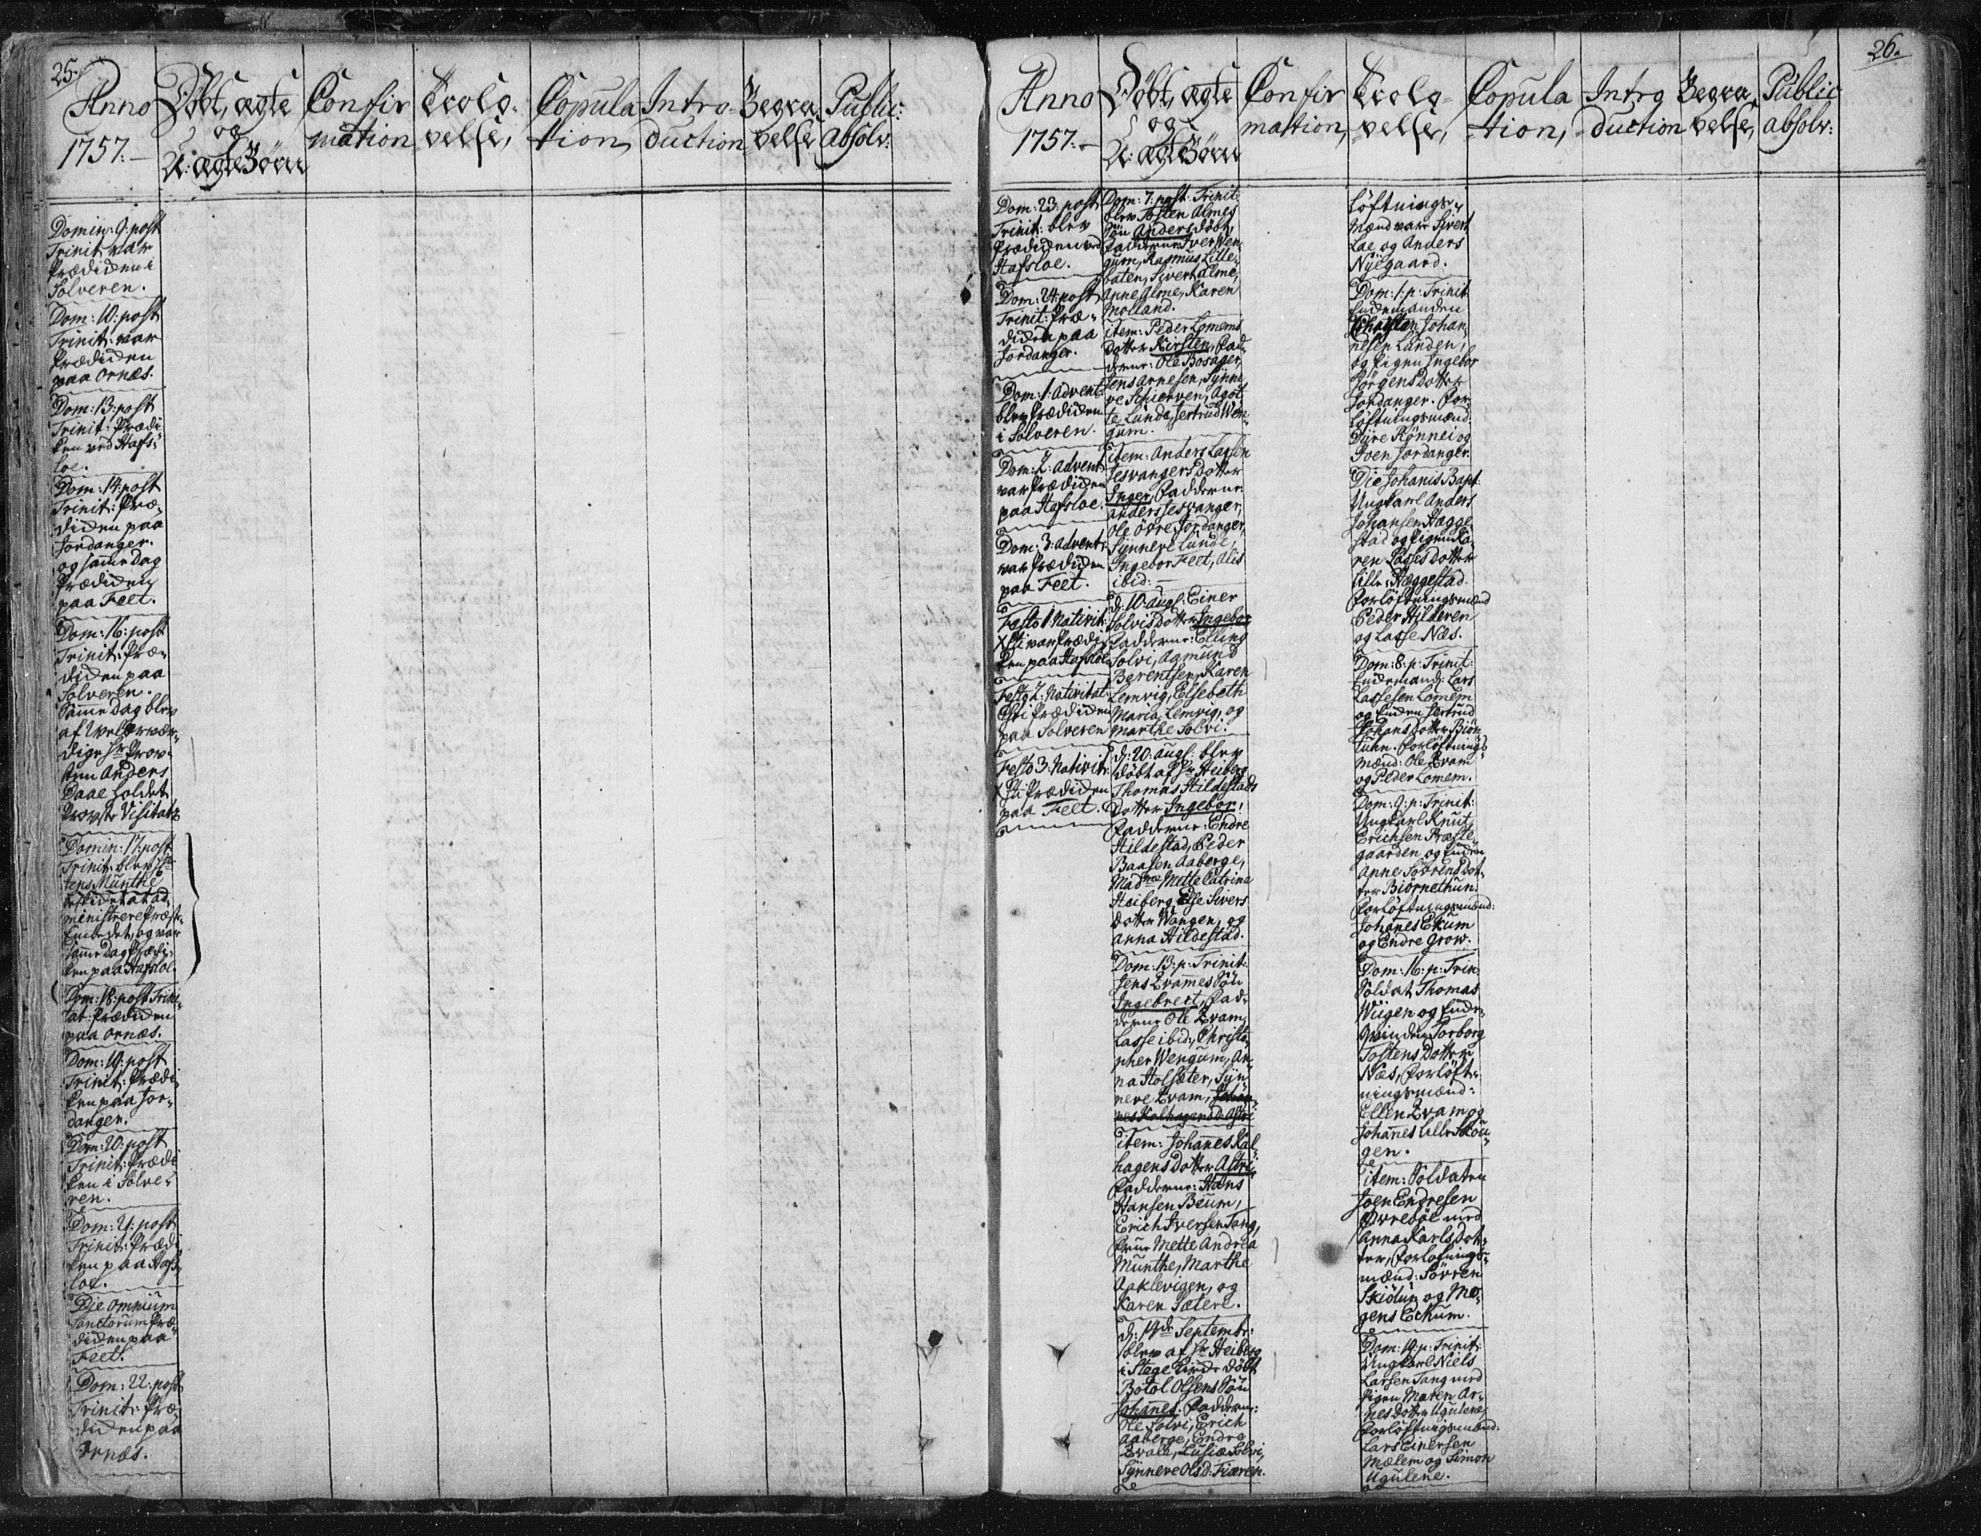 25.
Anno
1757.
Døbt, ægte
og
U: ægte Børn
Confir
mation
Trolo-
velse,
Copula
tion,
Intro-
duction
Begra-
velse
Public:
absolv:
Domin: 9. post
Trinit: var
Prædiken i
Solveren.
Dom: 10: post
Trinit: var
Prædiken
paa Ornæs.
Dom: 13: post
Trinit: Prædi
ken ved Hafs-
loe.
Dom: 14: post
Trinit: Præ-
diken paa
Jordanger.
og samme dag
Prædiken
paa Feet.
Dom: 16: post
Trinit: Præ-
diken paa
Solveren.
Samme dag blev
af Velærvær-
dige Hr Prov-
sten Anders
Daae holdet
Provste Visitatz
Domin: 17: post
Trinit: blev Hr
Jens Munthe
beskidet at ad
ministrere Præste-
Embedet, og var
samme dag Prædi-
ken paa Hafsloe.
Dom: 18: post Trini-
tat: Prædiken
paa Ornæs.
Dom: 19: post
Trinit: Prædi
ken paa Jor-
danger.
Dom: 20: post
Trinit: Prædi
ken i Solve-
ren.
Dom: 21: post
Trinit: Prædi
ken paa Hafs-
loe.
Die omnium
Sanctorum Præ-
diken paa
Feet.
Dom: 22: post
Trinit: Præ-
diken paa
Ornæs.
26.
Anno
1757.
Døbt, ægte
og
U: ægte Børn
Confir
mation,
Trolo-
velse,
Copula
tion,
Intro
duction
Begra-
velse,
Public
absolv:
Dom: 23: post
Trinit: blev
Prædiken ved
Hafsloe.
Dom: 24: post
Trinit: Præ-
diken paa
Jordanger.
Dom: 1: Advent:
blev Prædiken
i Solveren.
Dom: 2: Advent:
var Prædiken
paa Hafsloe.
Dom: 3: Advent:
var Prædiken
paa Feet.
Festo 1 Nativit:
Xsti var Prædi-
ken paa Hafsloe
Festo 2: Nativitat:
Xsti Prædiken
paa Solveren
Festo 3: Nativit:
Xsti Prædiken
paa Feet.
Dom: 7: post: Trinit:
blev Tosten Almes
Søn Anders døbt,
Fadderne: Iver Wen-
gum, Rasmus Lille-
baten, Sivert Alme,
Anne Alme, Karen
Molland.
item: Peder Lomems
dotter Kirsten, Fad-
derne: Ole Bosager,
Jens Arnesen, Synne
ve Schierven, Agot-
te Lunde, Jertrud Wen-
gum.
item: Anders Lassen
Jesvangers dotter
Inger, Fadderne:
Anders Jesvanger,
Ole øvre Jordanger,
Synneve Lunde,
Ingebor Feet, Alis
ibid:
d: 10: augs: Einer
Solvis dotter Ingebor
Fadderne: Elling
Solvi, Aamund
Berentsen, Karen
Lemvig, Elsebeth
Maria Lemvig, og
Marthe Solvi.
d: 20: augs: blev
døbt af Hr Heiberg
Thomas Hildestads
dotter Ingebor,
Fadderne: Endre
Hildestad, Peder
Baasen Aaberge,
Madme Mette Catrina
Heiberg, Else Sivers
dotter Wangen, og
Anna Hildestad.
Dom: 13: p: Trinit:
Jens Qvames Søn
Ingebrect, Fad-
derne Ole Qvam,
Lasse ibid:, Christo-
pher Wengum, An-
na Holsæter, Syn-
neve Qvam, Johan-
nes Kalhagens D: Astri
item: Johannes Kal
hagens dotter Astri
Fadderne: Hans
Hansen Beum,
Erich Iversen Tang,
Frue Mette Andrea
Munthe, Marthe
Asklevigen, og
Karen Sætere.
d: 14de Septembr:
blev af Hr Heiberg
i Stege Kirke døbt
Botol Olsens Søn
Johannes. Fadderne:
Ole Solvi, Erich
Aaberge, Endre
Qvale, Lusiæ Solvi,
Synneve Olsd: Fiæren.
løftnings-
Mænd vare Sivert
Lae og Anders
Nyegaard.
Dom: 1: p: Trinit:
Enkemanden
Christen Johan
nesen Lunden,
og Pigen Ingebor
Jørgens dotter
Jordanger. For
løftningsmænd
Dyre Rønnei og
Joen Jordanger.
Die Johanis Bapt:
Ungkarl Anders
Johansen Hægge-
stad og Pigen Ka-
ren Lasses dotter
lille Hæggestad.
Forløftningsmænd
Peder Hilderen
og Lasse Næs.
Dom: 8: p: Trinit:
Enkemand: Lars
Lassesen Lomem
og Enken Jertrud
Johans dotter Biør-
tuhn. Forløftnings
mænd: Ole Qvam
og Peder Lomem.
Dom: 9: p: Trinit:
Ungkarl Knut
Erichsen Præste-
gaarden og Enken
Anne Sørens dot-
ter Biørnethun.
Forløftningsmænd:
Johanes Ekum
og Endre Grow.
Dom: 16: p: Trin:
Soldat Thomas
Wiigen og Enke-
Qvinden Torborg
Tostens dotter
Næs, Forløft-
ningsmænd:
Ellen Qvam og
Johannes Ulle Skou-
gen.
item: Soldaten
Joen Endresen
Øvrebøe med
Anna Karls dot-
ter, Forløfnings-
mænd: Sørren
Skiølup og Mo-
gens Eckum.
Dom: 19: p: Trinit:
Ungkarl Niels
Larsen Tang med
Pigen Maren Ar-
nes dotter Ugulene,
Forløftningsmænd:
Lars Einersen
Mælem og Simon
Ugulene.